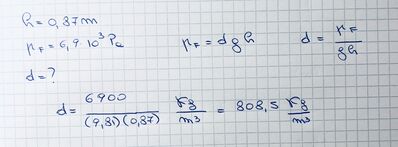 h = 0,87 m
p_F = 6,9 10³ Pa    p_F = d g h    d = p_F / gh
d = ?
d = 6900 / (9,81)(0,87) Kg/m³ = 808,5 Kg/m³